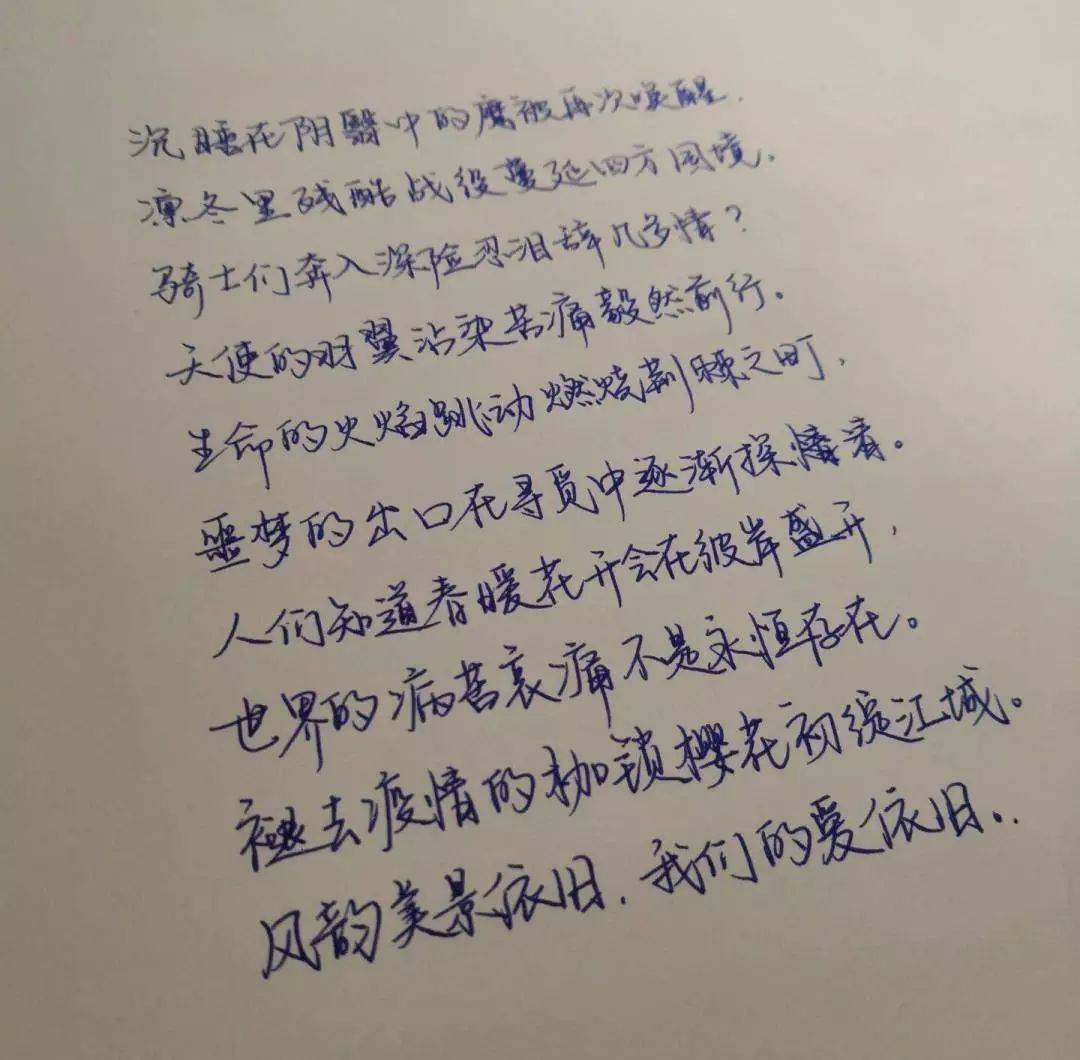 沉睡在阴翳中的魔被再次唤醒.
凛冬里残酷战役蔓延四方国境.
骑士们奔入深险忍泪辞几多情？
天使的羽翼沾染苦痛毅然前行。
生命的火焰跳动燃烧荆棘之町,
噩梦的出口在寻觅中逐渐探清。
人们知道春暖花开会在彼岸盛开,
世界的病苦哀痛不是永恒存在。
褪去疫情的枷锁樱花初绽江城。
风韵美景依旧.我们的爱依旧..